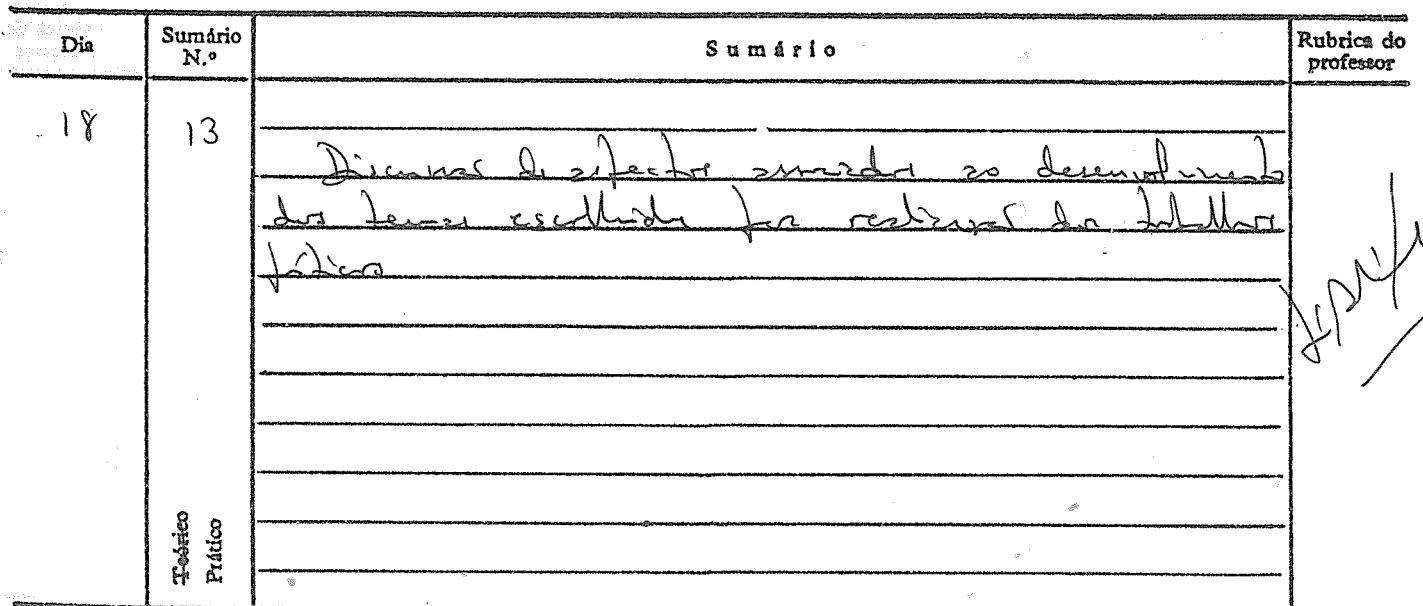 Dia
Sumário N.º
Sumário
Rubrica do professor
18
13
Discussão de aspectos associados ao desenvolvimento
dos temas escolhidos para realização dos trabalhos
práticos
Teórico
Prático